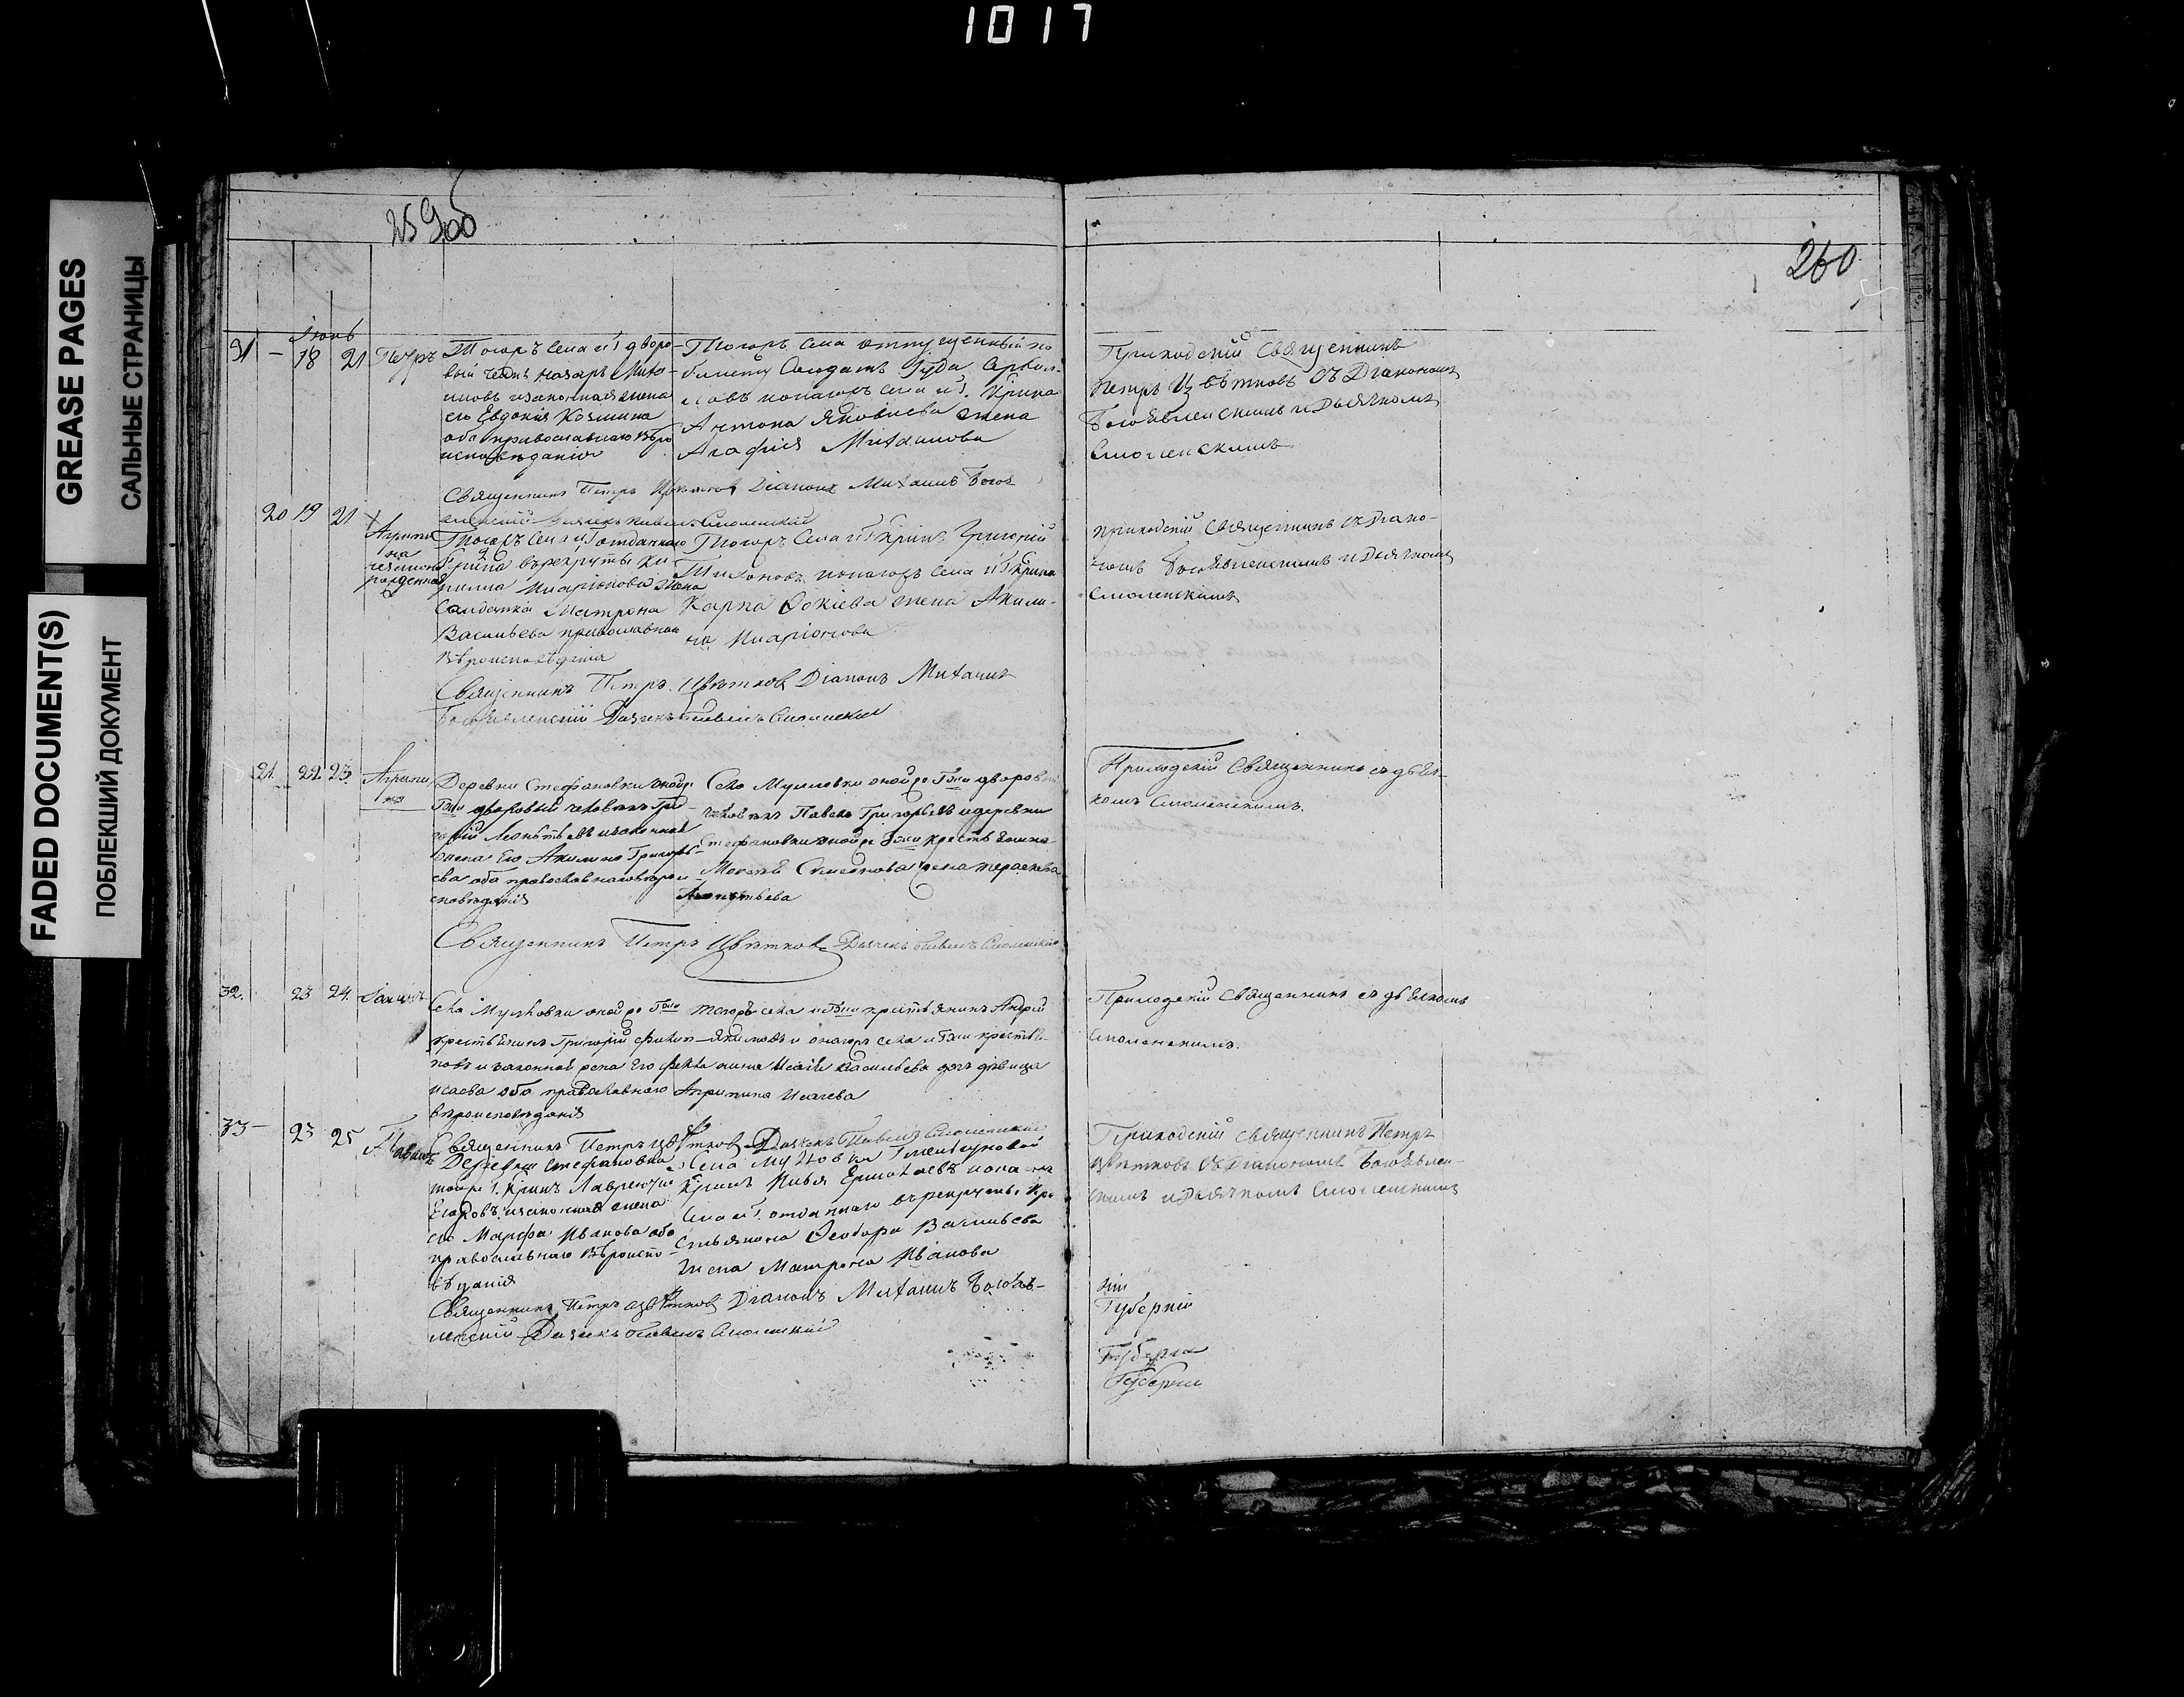 1017
GREASE PAGES
САЛЬНЫЕ СТРАНИЦЫ
FADED DOCUMENT(S)
ПОБЛЕКШИЙ ДОКУМЕНТ
259об
260
Іюнь
31 — 18 21 Петръ
Тогоръ села и Г дворо-
вый Назаръ
иновъ и законная жена
его Евдокія Козмина
оба православнаго вѣро
исповѣданія
Тогоръ села отпущенный
солдатъ
села и Г. Крина
Антона Яковлева жена
Агафия Михаилова
Приходскій Священникъ
Петръ Цвѣтковъ съ Діакономъ
Богоявленскимъ и Дьячкомъ
Смоленскимъ
Священникъ Петръ Цвѣтковъ Діаконъ Михаилъ Богояв
Смоленскій
20 19 21
Агрипи
на
незаконно
рожденная
Тогоръ села и Г отданнаго
въ рекруты Ки
рилла Иларіонова жена
Солдатка Матрона
Васильева православнаго
вѣроисповѣденія
Тогоръ Села и Г Кринъ Григорій
Тихоновъ и села и Г Крина
Карпа жена Акили-
на Иларіонова
приходскій Священникъ съ Діако-
номъ Богоявленскимъ и Дьячкомъ
Смоленскимъ
Священникъ Петръ Цвѣтковъ Діаконъ Михаилъ
Богоявленскій Дьячекъ Павелъ Смоленскій
21. 22. 23. Агрипи
на
Деревни Стефановки оной же
Гжи дворовый человекъ Гри-
горій Леонтьевъ и законная
жена Его Акилина Григорь-
ева оба православнаго вѣрои-
сповѣданія
Села Мулловки оной же Гжи дворовый
человекъ Павелъ Григорьевъ и деревни
Стефановки оной же Гжи крестьянина
Моисея Симеонова жена параскева
Леонтьева
Приходскій Священникъ съ дья-
комъ Смоленскимъ.
Священникъ Петръ Цвѣтковъ Дьячекъ Павелъ Смоленскій
32. 23 24. Іоаннъ
Села Мулловки оной же Гжи
крестьянинъ Григорій Филип-
повъ и законная жена Его Фекла
исаева оба православнаго
вѣроисповѣданія
тогоръ села и Гжи крестьянинъ Андрей
и оногоръ села и Гжи крестья-
нина Исаія Васильева дочь дѣвица
Агрипина Исаева
Приходскій Священникъ съ дьячкомъ
Смоленскимъ.
33 — 23 25 Павелъ
Священникъ Петръ Цвѣтковъ Дьячекъ Павелъ Смоленскій
Деревни Стефановки
тойже Г. Кринъ Лаврентій
Егоровъ и законная жена
его Марфа Иванова оба
православнаго вѣроиспо-
вѣданія
Села Мулловки
Кринъ Илья Ермолаевъ
Села и Г. отданнаго въ рекруты Кре
стьянина Феодора Васильева
жена Матрона Иванова
Приходскій Священникъ Петръ
Цвѣтковъ съ Діакономъ Богоявлен-
скимъ и Дьячкомъ Смоленскимъ
Священникъ Петръ Цвѣтковъ Діаконъ Михаилъ Богояв-
ленскій Дьячекъ Павелъ Смоленскій
Губерній
Губерніи
Губерніи